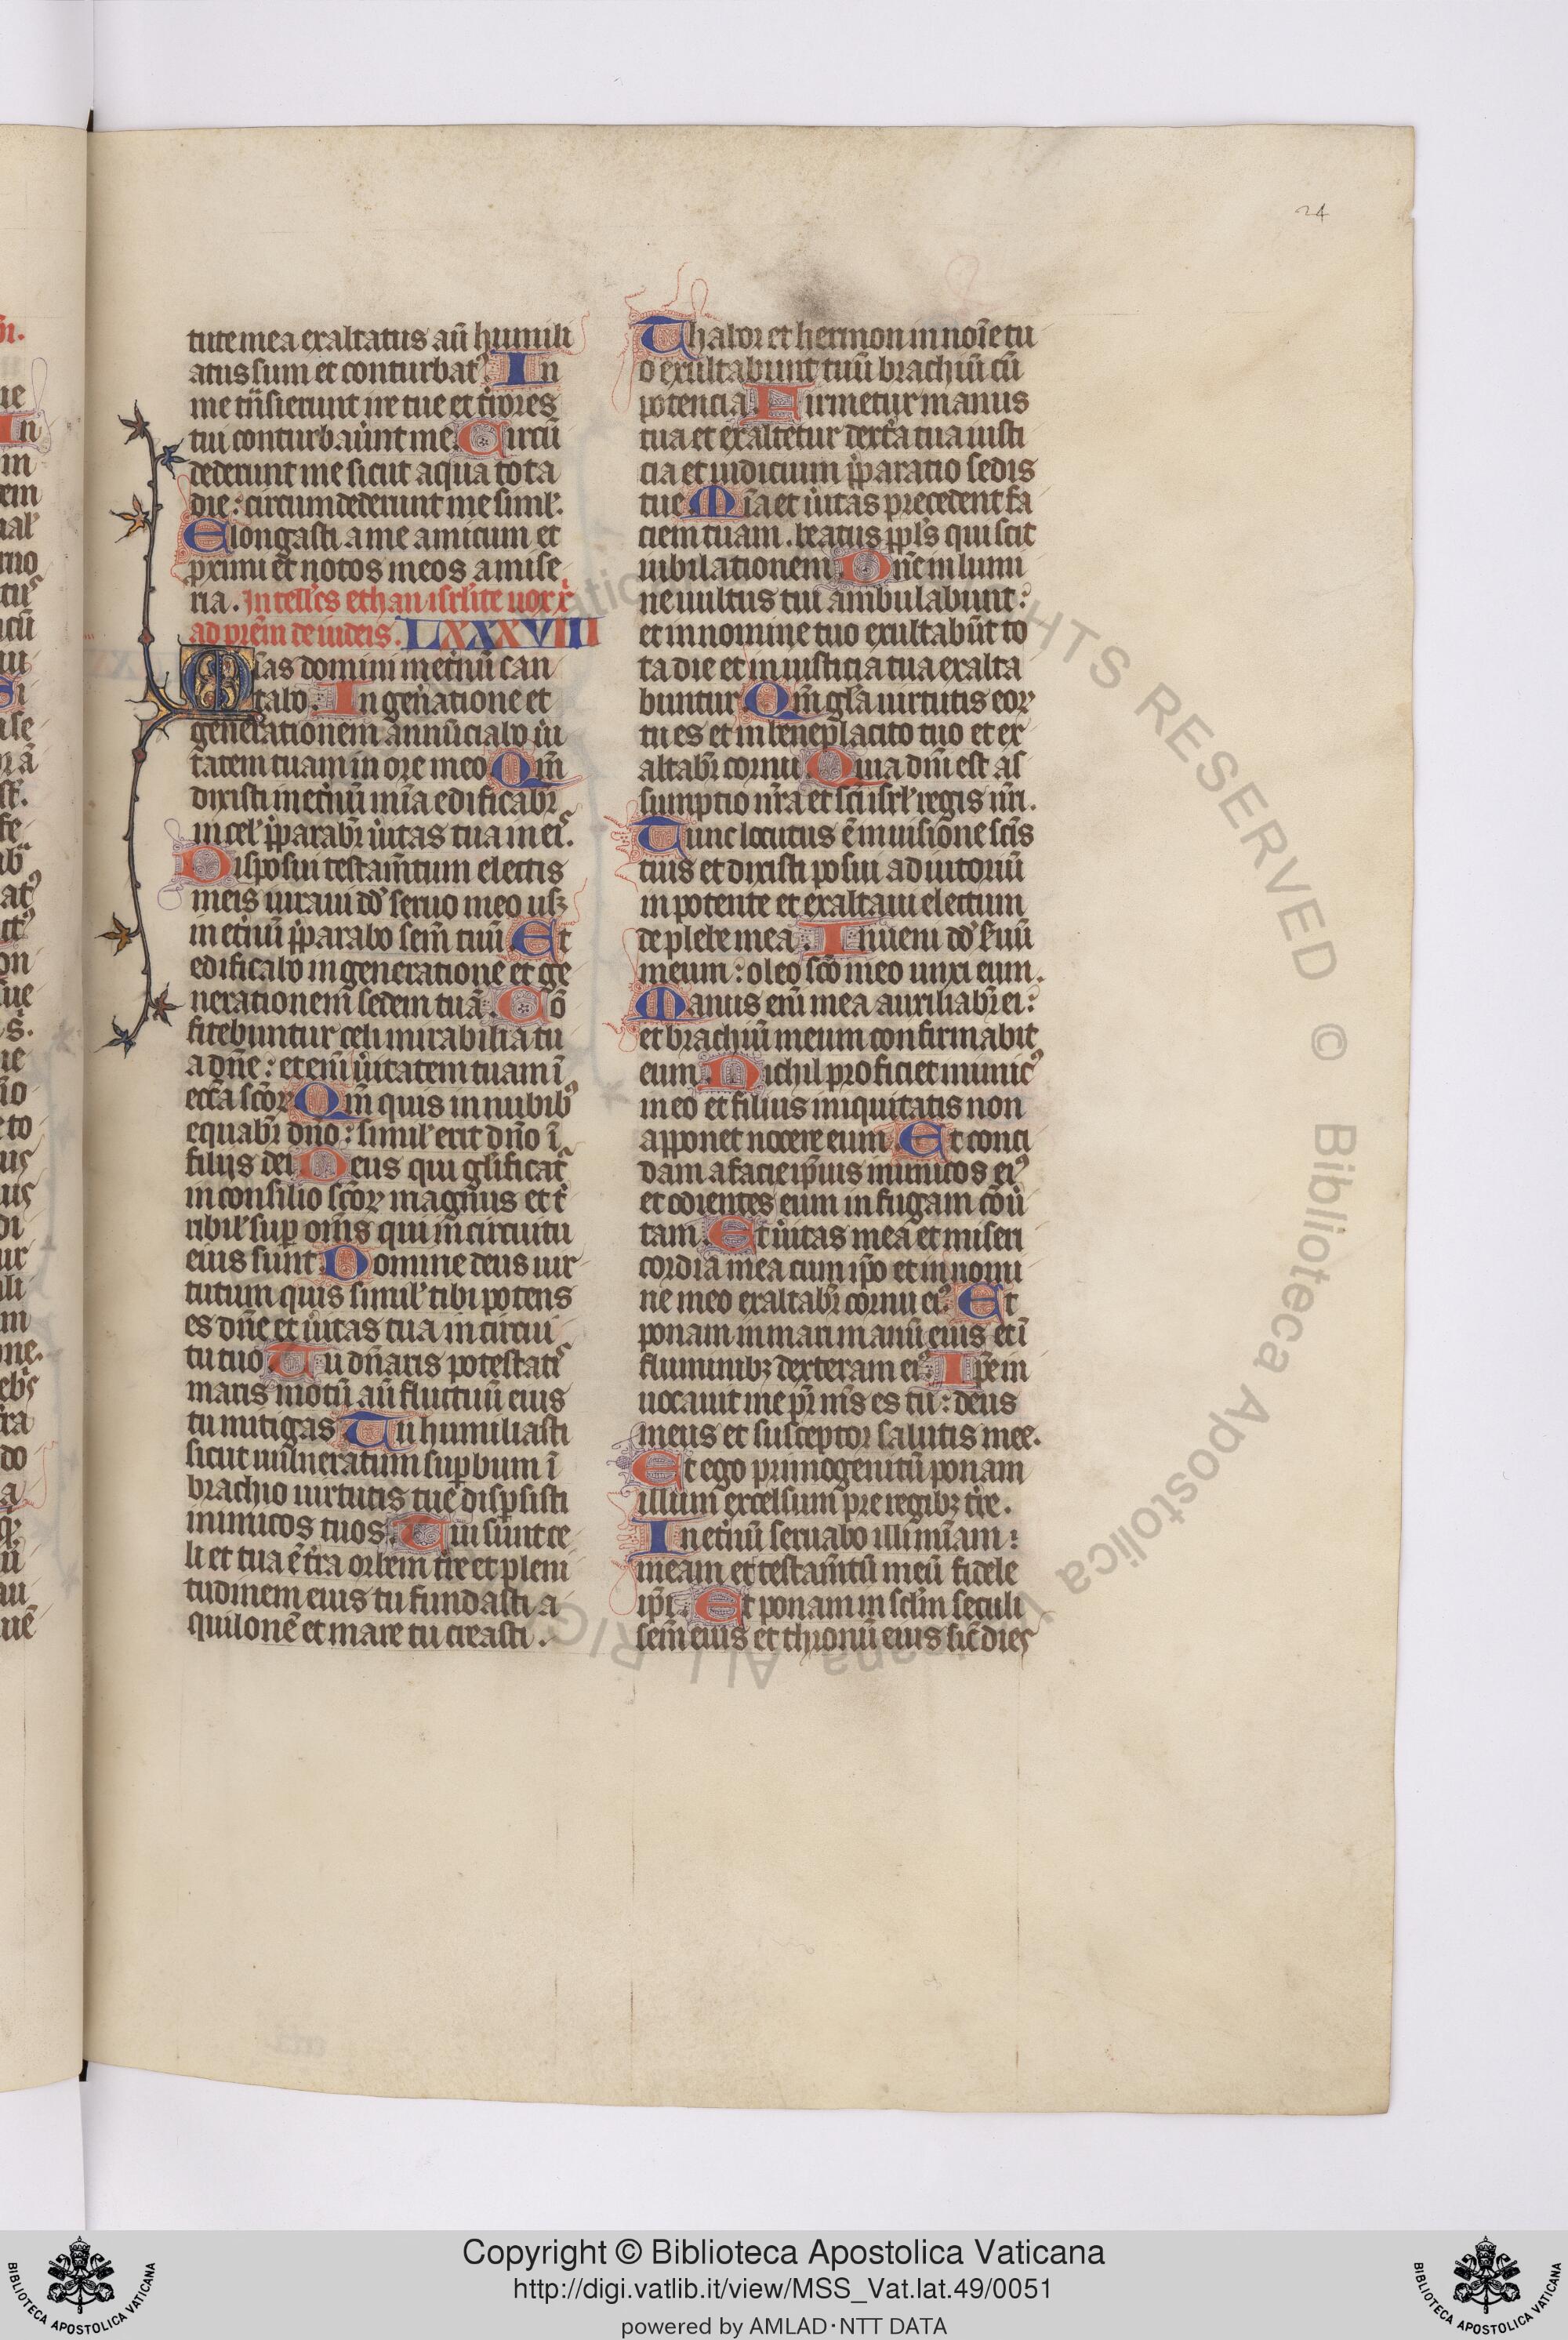 24
tute mea exaltatus aū humili
atus sum et conturbatꝰ. In
me trāsierunt ire tue et t̓rores
tui conturbau̓unt me. Circū
dederunt me sicut aqua tota
die: circumdederunt me siml̓.
Elongasti a me amicum et
ꝓximū et notos meos a mise
ria. Intell̓cs ethan isrl̓ite uox x̓
ad pr̄em de iudeis. LXXXVIII
Mīas domini in et̓nū can
tabo. In gen̓atione et
generationem annūciabo ūi
tatem tuam in ore meo. Qm̄
dixisti in et̓nū mīa edificabr̄
in cel̓ p̄parabr̄ ūitas tua in eis.
Disposui testam̄tum electis
meis iuraui dd̓ seruo meo usqꝫ
in et̓nū p̄parabo sem̄ tuū. Et
edificabo in generationē et ge
nerationem sedem tuā. Cō
fitebuntur celi mirabilia tu
a dn̄e: etenī ūitatem tuam ī
eccl̓a scōꝝ. Qm̄ quis in nubibꝰ
equabr̄ dn̄o: simil̓ erit dn̄o ī
filijs dei. Deus qui gl̓ificat̓
in consilio scōꝝ magnus et t̓
ribil̓ suꝑ om̄s qui in circuitu
eius sunt. Domine deus uir
tutum quis simil̓ tibi potens
es dn̄e et ūitas tua in circui
tu tuo. Tu dn̄aris potestatī
maris motū aū fluctuū eius
tu mitigas. Tu humiliasti
sicut uulneratum suꝑbum ī
brachio uirtutis tue disꝑsisti
inimicos tuos. Tui sunt ce
li et tua ē t̓ra orbem t̓re et pleni
tudinem eius tu fundasti a
quilonē et mare tu creasti.
Thabor et hermon in noīe tu
o exultabunt tuū brachiū cū
potencia. Firmetur manus
tua et exaltetur dext̓a tua iusti
cia et iudicium p̄paratio sedis
tue. Mīa et ūitas precedent fa
ciem tuam. beatus ppl̓s qui scit
iubilationem. Dn̄e in lumi
ne uultus tui ambulabunt:
et in nomine tuo exultabūt to
ta die et in iusticia tua exalta
buntur. Qm̄ gl̓a uirtutis eoꝝ
tu es et in beneplacito tuo et ex
altabr̄ cornu. Quia dn̄i est as
sumptio nr̄a et sc̄i isrl̓ regis nr̄i.
Tunc locutus ē in uisione scīs
tuis et dixisti posui adiutoriū
in potente et exaltaui electum
de plebe mea. Inueni dd̓ s̓uū
meum: oleo scō meo unxi eum.
Manus enī mea auxiliabr̄ ei:
et brachiū meum confirmabit
eum. Nichil proficiet inimicꝰ
in eo et filius iniquitatis non
apponet nocere eum. Et conci
dam a facie ip̄ius inimicos eiꝰ
et odientes eum in fugam cōū
tam. Et ūitas mea et miseri
cordia mea cum ip̄o et in nomi
ne meo exaltabr̄ cornu eiꝰ. Et
ponam in mari manū eius et ī
fluminibꝫ dexteram eiꝰ. Ip̄e in
uocauit me pr̄ m̄s es tu: deus
meus et susceptor salutis mee.
Et ego primogenitū ponam
illum excelsum pre regibꝫ t̓re.
In et̓nū seruabo illi mīam:
meam et testam̄tū meū fidele
ip̄i. Et ponam in scl̓m seculi
sem̄ eius et thronū eius sic̄ dies
Biblioteca Apostolica Vaticana ALL RIGHTS RESERVED ©
Copyright © Biblioteca Apostolica Vaticana
http://digi.vatlib.it/view/MSS_Vat.lat.49/0051
powered by AMLAD·NTT DATA
BIBLIOTECA APOSTOLICA VATICANA
BIBLIOTECA APOSTOLICA VATICANA